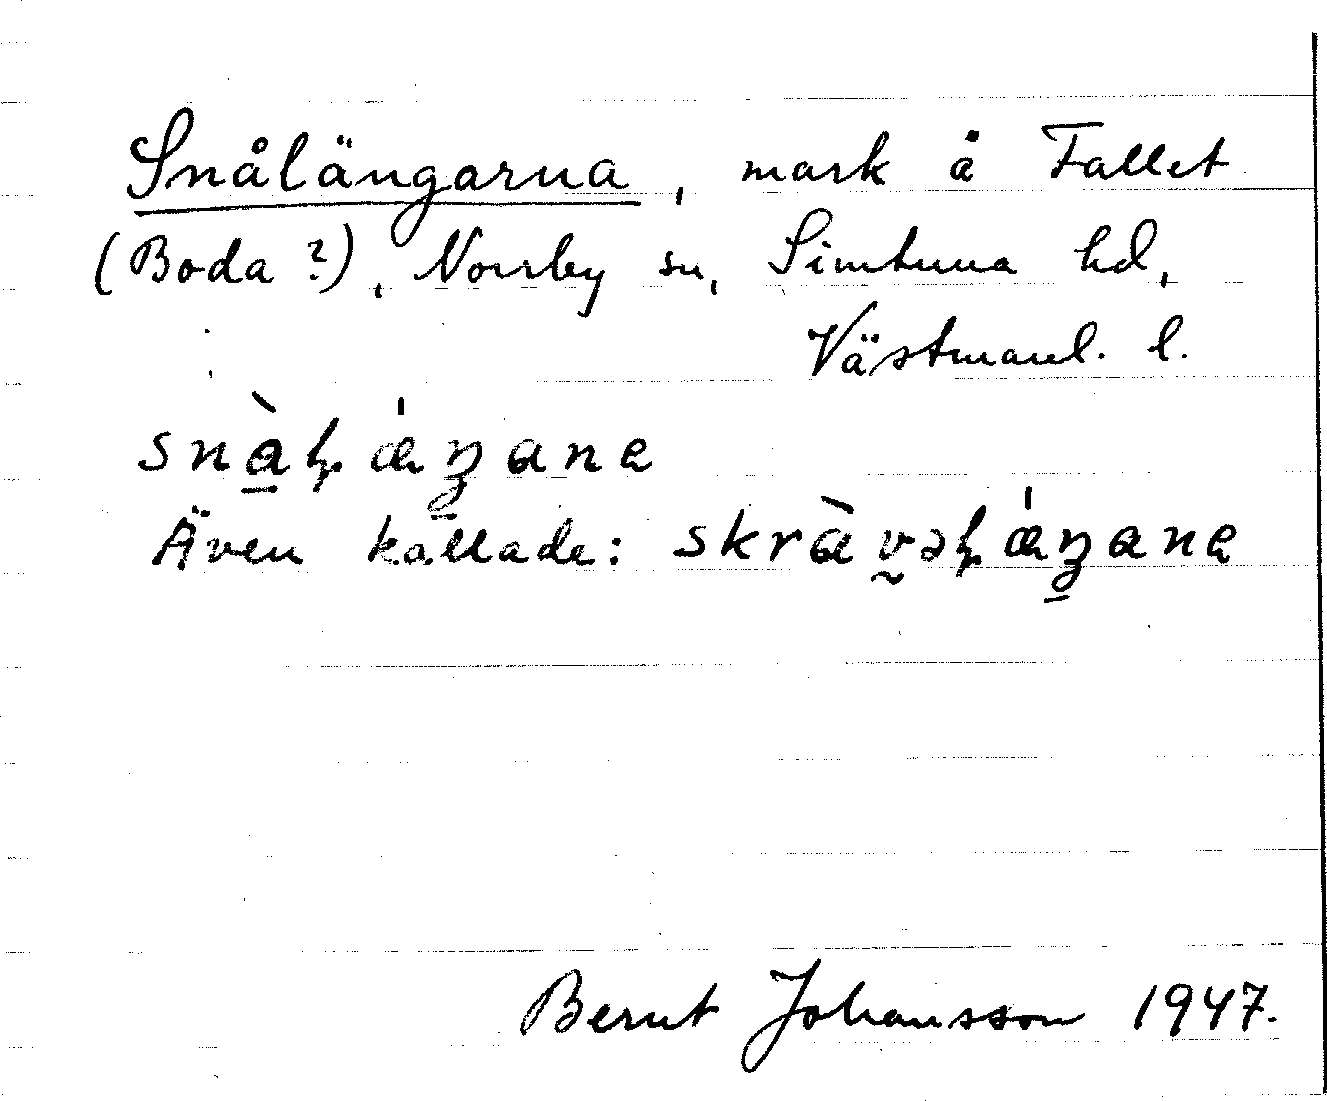 Snålängarna, mark å Fallet
(Boda ?), Norrby sn, Simtuna hd,
Västmanl. l.
Även kallade:
Bernt Johansson 1947.